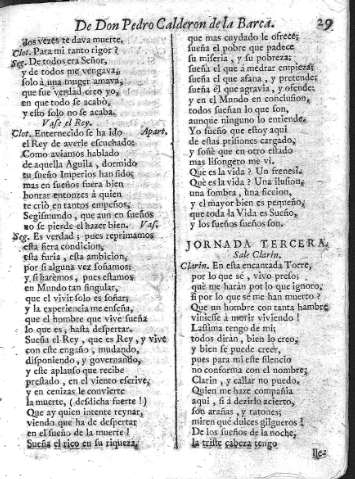 De Don Pedro Calderon de la Barca. 29
dos vezes te dava muerte.
Clot. Para mi tanto rigor?
Seg. De todos era Señor,
y de todos me vengava;
solo à una muger amava,
que fue verdad creo yo,
en que todo se acabo,
y esto solo no se acaba.
Vase el Rey.
Clot. Enternecido se ha ido Apart.
el Rey de averle escuchado:
Como aviamos hablado
de aquella Aguila, dormido
tu sueño Imperios han sido;
mas en sueños fuera bien
honrar entonces à quien
te criò en tantos empeños,
Segismundo, que aun en sueños
no se pierde el hazer bien. Vas.
Seg. Es verdad; pues reprimamos
esta fiera condicion,
esta furia, esta ambicion,
por si alguna vez soñamos;
y si haremos, pues estamos
en Mundo tan singular,
que el vivir solo es soñar;
y la experiencia me enseña,
que el hombre que vive sueña
lo que es, hasta despertar.
Sueña el Rey, que es Rey, y vive
con este engaño, mandando,
disponiendo, y governando,
y este aplauso que recibe
prestado, en el viento escrive,
y en cenizas le convierte
la muerte, (desdicha fuerte!)
Que ay quien intente reynar,
viendo que ha de despertar
en el sueño de la muerte!
Sueña el rico en su riqueza,
que mas cuydado le ofrece;
sueña el pobre que padece
su miseria, y su pobreza;
sueña el que à medrar empieza;
sueña el que afana, y pretende;
sueña èl que agravia, y ofende;
y en el Mundo en conclusion,
todos sueñan lo que son,
aunque ninguno lo entiende.
Yo sueño que estoy aqui
de estas prisiones cargado,
y soñè que en otro estado
mas lisongero me vi.
Què es la vida? Un frenesi.
Què es la vida? Una ilusion,
una sombra, una ficcion,
y el mayor bien es pequeño,
que toda la Vida es Sueño,
y los sueños sueños son.
JORNADA TERCERA.
Sale Clarin.
Clarin. En esta encantada Torre,
por lo que sè, vivo preso;
què me haràn por lo que ignoro,
si por lo que sè me han muerto?
Que un hombre con tanta hambre
viniesse à morir viviendo!
Lastima tengo de mi;
todos diràn, bien lo creo;
y bien se puede creer,
pues para mi este silencio
no conforma con el nombre;
Clarin, y callar no puedo.
Quien me haze compañia
aqui, si à dezirlo acierto,
son arañas, y ratones;
miren què dulces gilgueros!
De los sueños de la noche,
la triste cabeza tengo